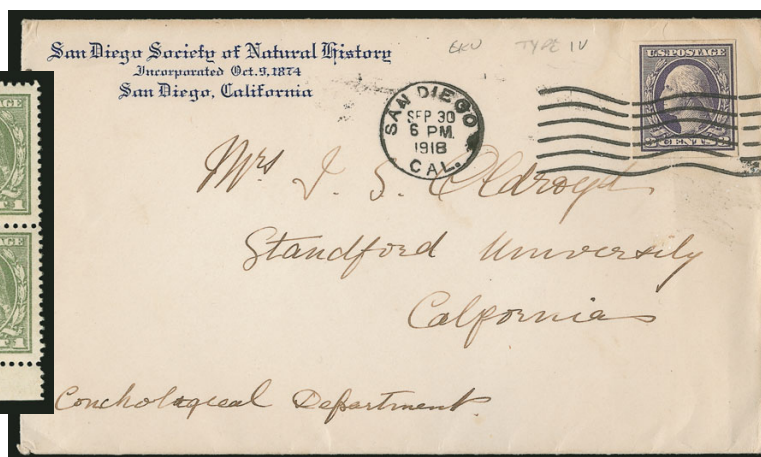 San Diego Society of Natural History
Incorporated Oct. 9, 1874
San Diego, California
EKU TYPE IV
U.S. POSTAGE
SAN DIEGO
SEP 30
6 PM.
1918
CAL.
Mrs I. S. Oldroyd
Standford University
Calfornia
Conchological Department